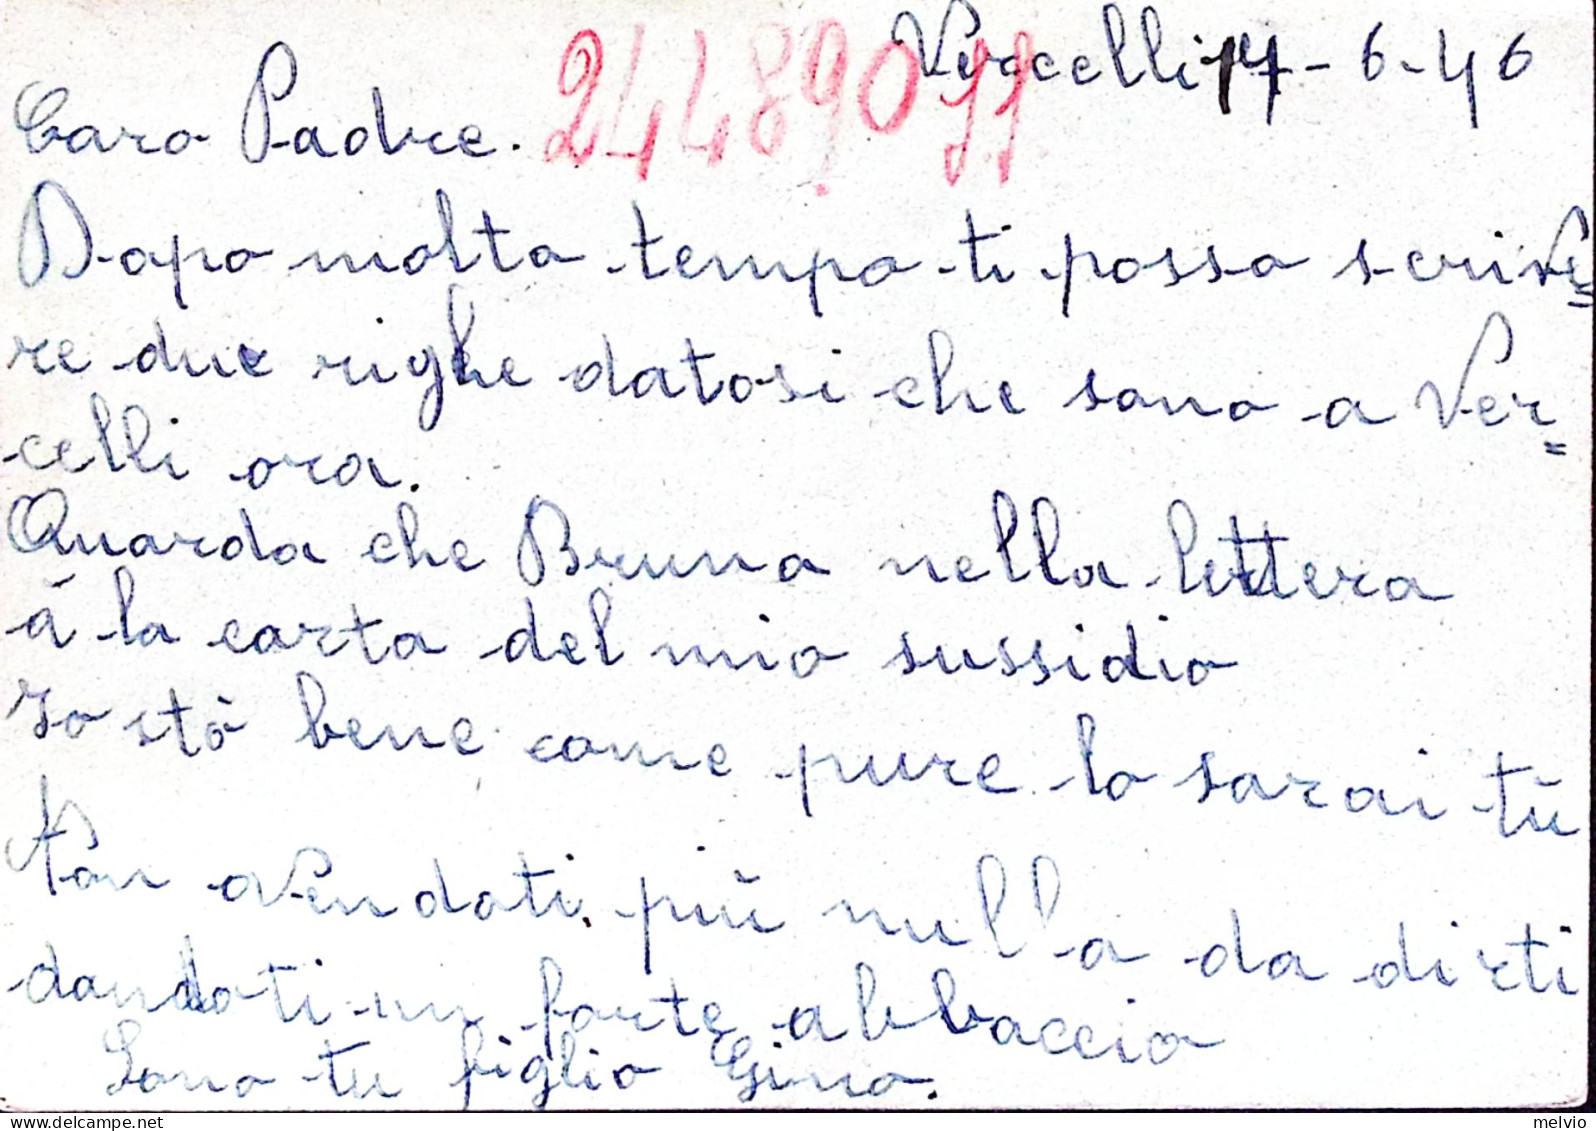 Vercelli 17-6-46
Caro Padre. 24489077
Dopo molto tempo ti posso scrive=
re due righe datosi che sono a Ver=
celli ora.
Quarda che Bruna nella lettera
à la carta del mio sussidio
Io stò bene come pure lo sarai tù
Non avendoti più nulla da dirti
dandoti un forte abbraccio
Sono tu figlio Gino.
melvio